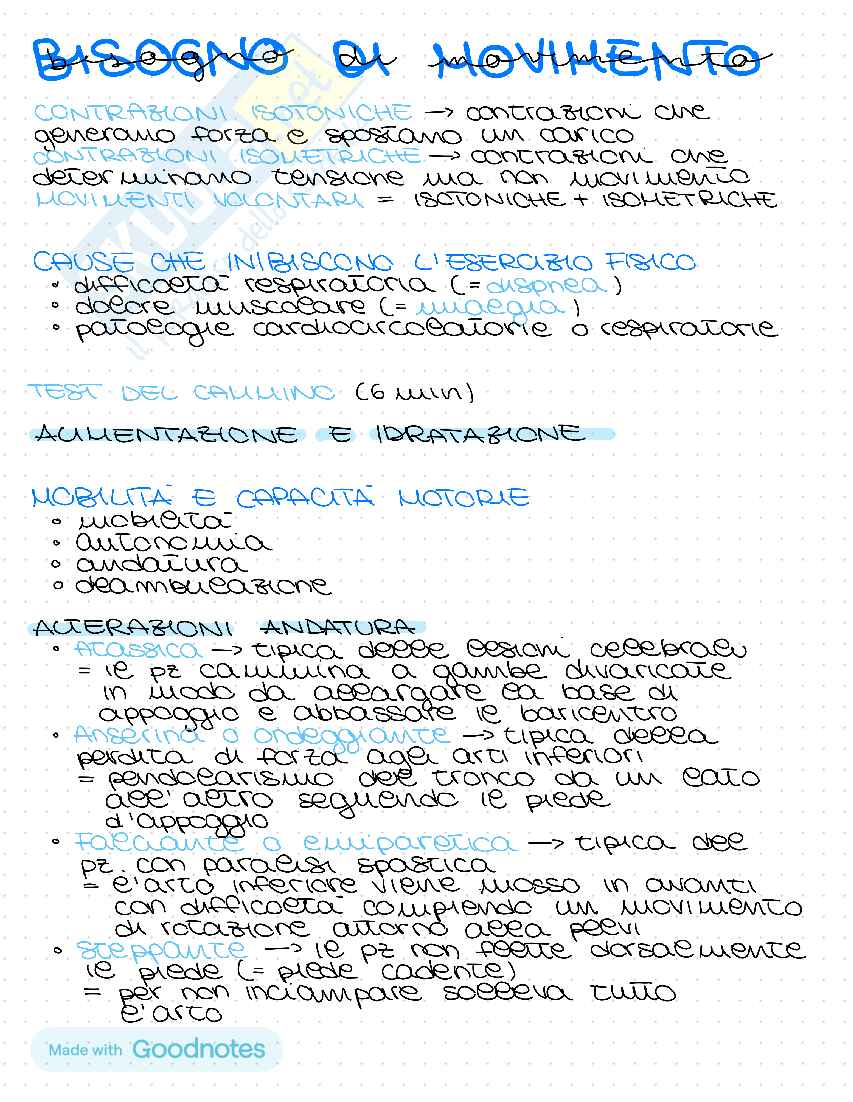 BISOGNO DI MOVIMENTO
bisogno di movimento
CONTRAZIONI ISOTONICHE → contrazioni che
generano forza e spostano un carico
CONTRAZIONI ISOMETRICHE → contrazioni che
determinano tensione ma non movimento
MOVIMENTI VOLONTARI = ISOTONICHE + ISOMETRICHE
CAUSE CHE INIBISCONO L'ESERCIZIO FISICO
• difficoltà respiratoria (= dispnea)
• dolore muscolare (= mialgia)
• patologie cardiocircolatorie o respiratorie
TEST DEL CAMMINO (6 min)
ALIMENTAZIONE E IDRATAZIONE
MOBILITÀ E CAPACITÀ MOTORIE
• mobilità
• autonomia
• andatura
• deambulazione
ALTERAZIONI ANDATURA
• Atassica → tipica delle lesioni celebrali
= il pz cammina a gambe divaricate
in modo da allargare la base di
appoggio e abbassare il baricentro
• Anserina o ondeggiante → tipica della
perdita di forza agli arti inferiori
= pendolarismo del tronco da un lato
all'altro seguendo il piede
d'appoggio
• Falciante o emiparetica → tipica del
pz. con paralisi spastica
= l'arto inferiore viene mosso in avanti
con difficoltà compiendo un movimento
di rotazione attorno alla pelvi
• Steppante → il pz non flette dorsalmente
il piede (= piede cadente)
= per non inciampare solleva tutto
l'arto
Made with Goodnotes